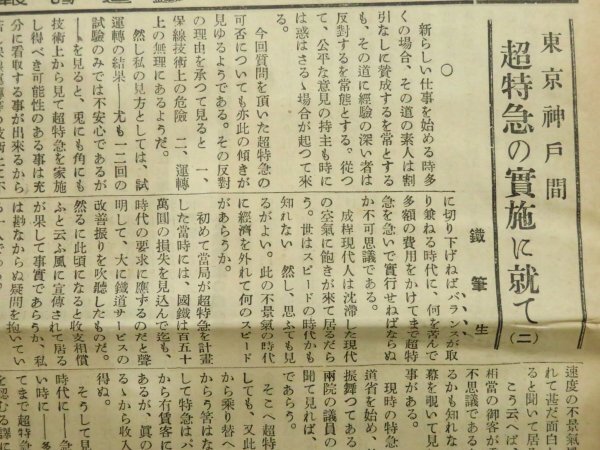 東京神戸間
超特急の實施に就て(二)
鐵筆生
〇
新らしい仕事を始める時多
くの場合、その道の素人は割
引なしに贊成するを常とする
も、その道に經驗の深い者は
反對するを常態とする。從つ
て、公平な意見の持主も時に
は惑はさるゝ場合が起つて來
る。
今回質問を頂いた超特急の
可否についても亦此の傾きが
見ゆるようである。その反對
の理由を承つて見ると 一、
保線技術上の危險 二、運轉
上の無理にあるようだ。
然し私の見方としては、試
運轉の結果――尤も一二回の
試驗のみでは不安心であるが
――を見ると、兎にも角にも
技術上から見て超特急を實施
し得べき可能性のある事は充
分に看取する事が出來るから
に切り下げねばバランスが取
り兼ねる時代に、何を苦んで
多額の費用をかけてまで超特
急を急いで實行せねばならぬ
か不可思議である。
成程現代人は沈滯した現代
の空氣に飽きが來て居るだら
う。世はスピードの時代かも
知れない 然し、思ふても見
るがよい。此の不景氣の時代
に經濟を外れて何のスピード
があらうか。
初めて當局が超特急を計畫
した當時には、國鐵は百五十
萬圓の損失を見込んで迄も、
時代の要求に應ずるのだと聲
明して、大に鐵道サービスの
改善振りを吹聽したものだ。
然るに此頃になると收支相償
ふと云ふ風に宣傳されて居る
が果して事實であらうか、私
は尠なからぬ疑問を抱いてい
速度の不景氣風
れて甚だ面白か
ると聞いて居る
こう云へば、
相當の御客が
不思議である
るかも知れな
幕を覗いて見
事がある。
現時の特急
道省を始め、
振舞つてある
兩院の議員の
聞て見れば、
であらう。
そこへ超特
しても、又此
から乘り替へ
からう筈はな
して特急はパ
から有賃客に
あるが、眞の
るゝから收入
得ぬ。
そうして見
時代に――急
い時に――多
てまで超特急
を認むる譯に